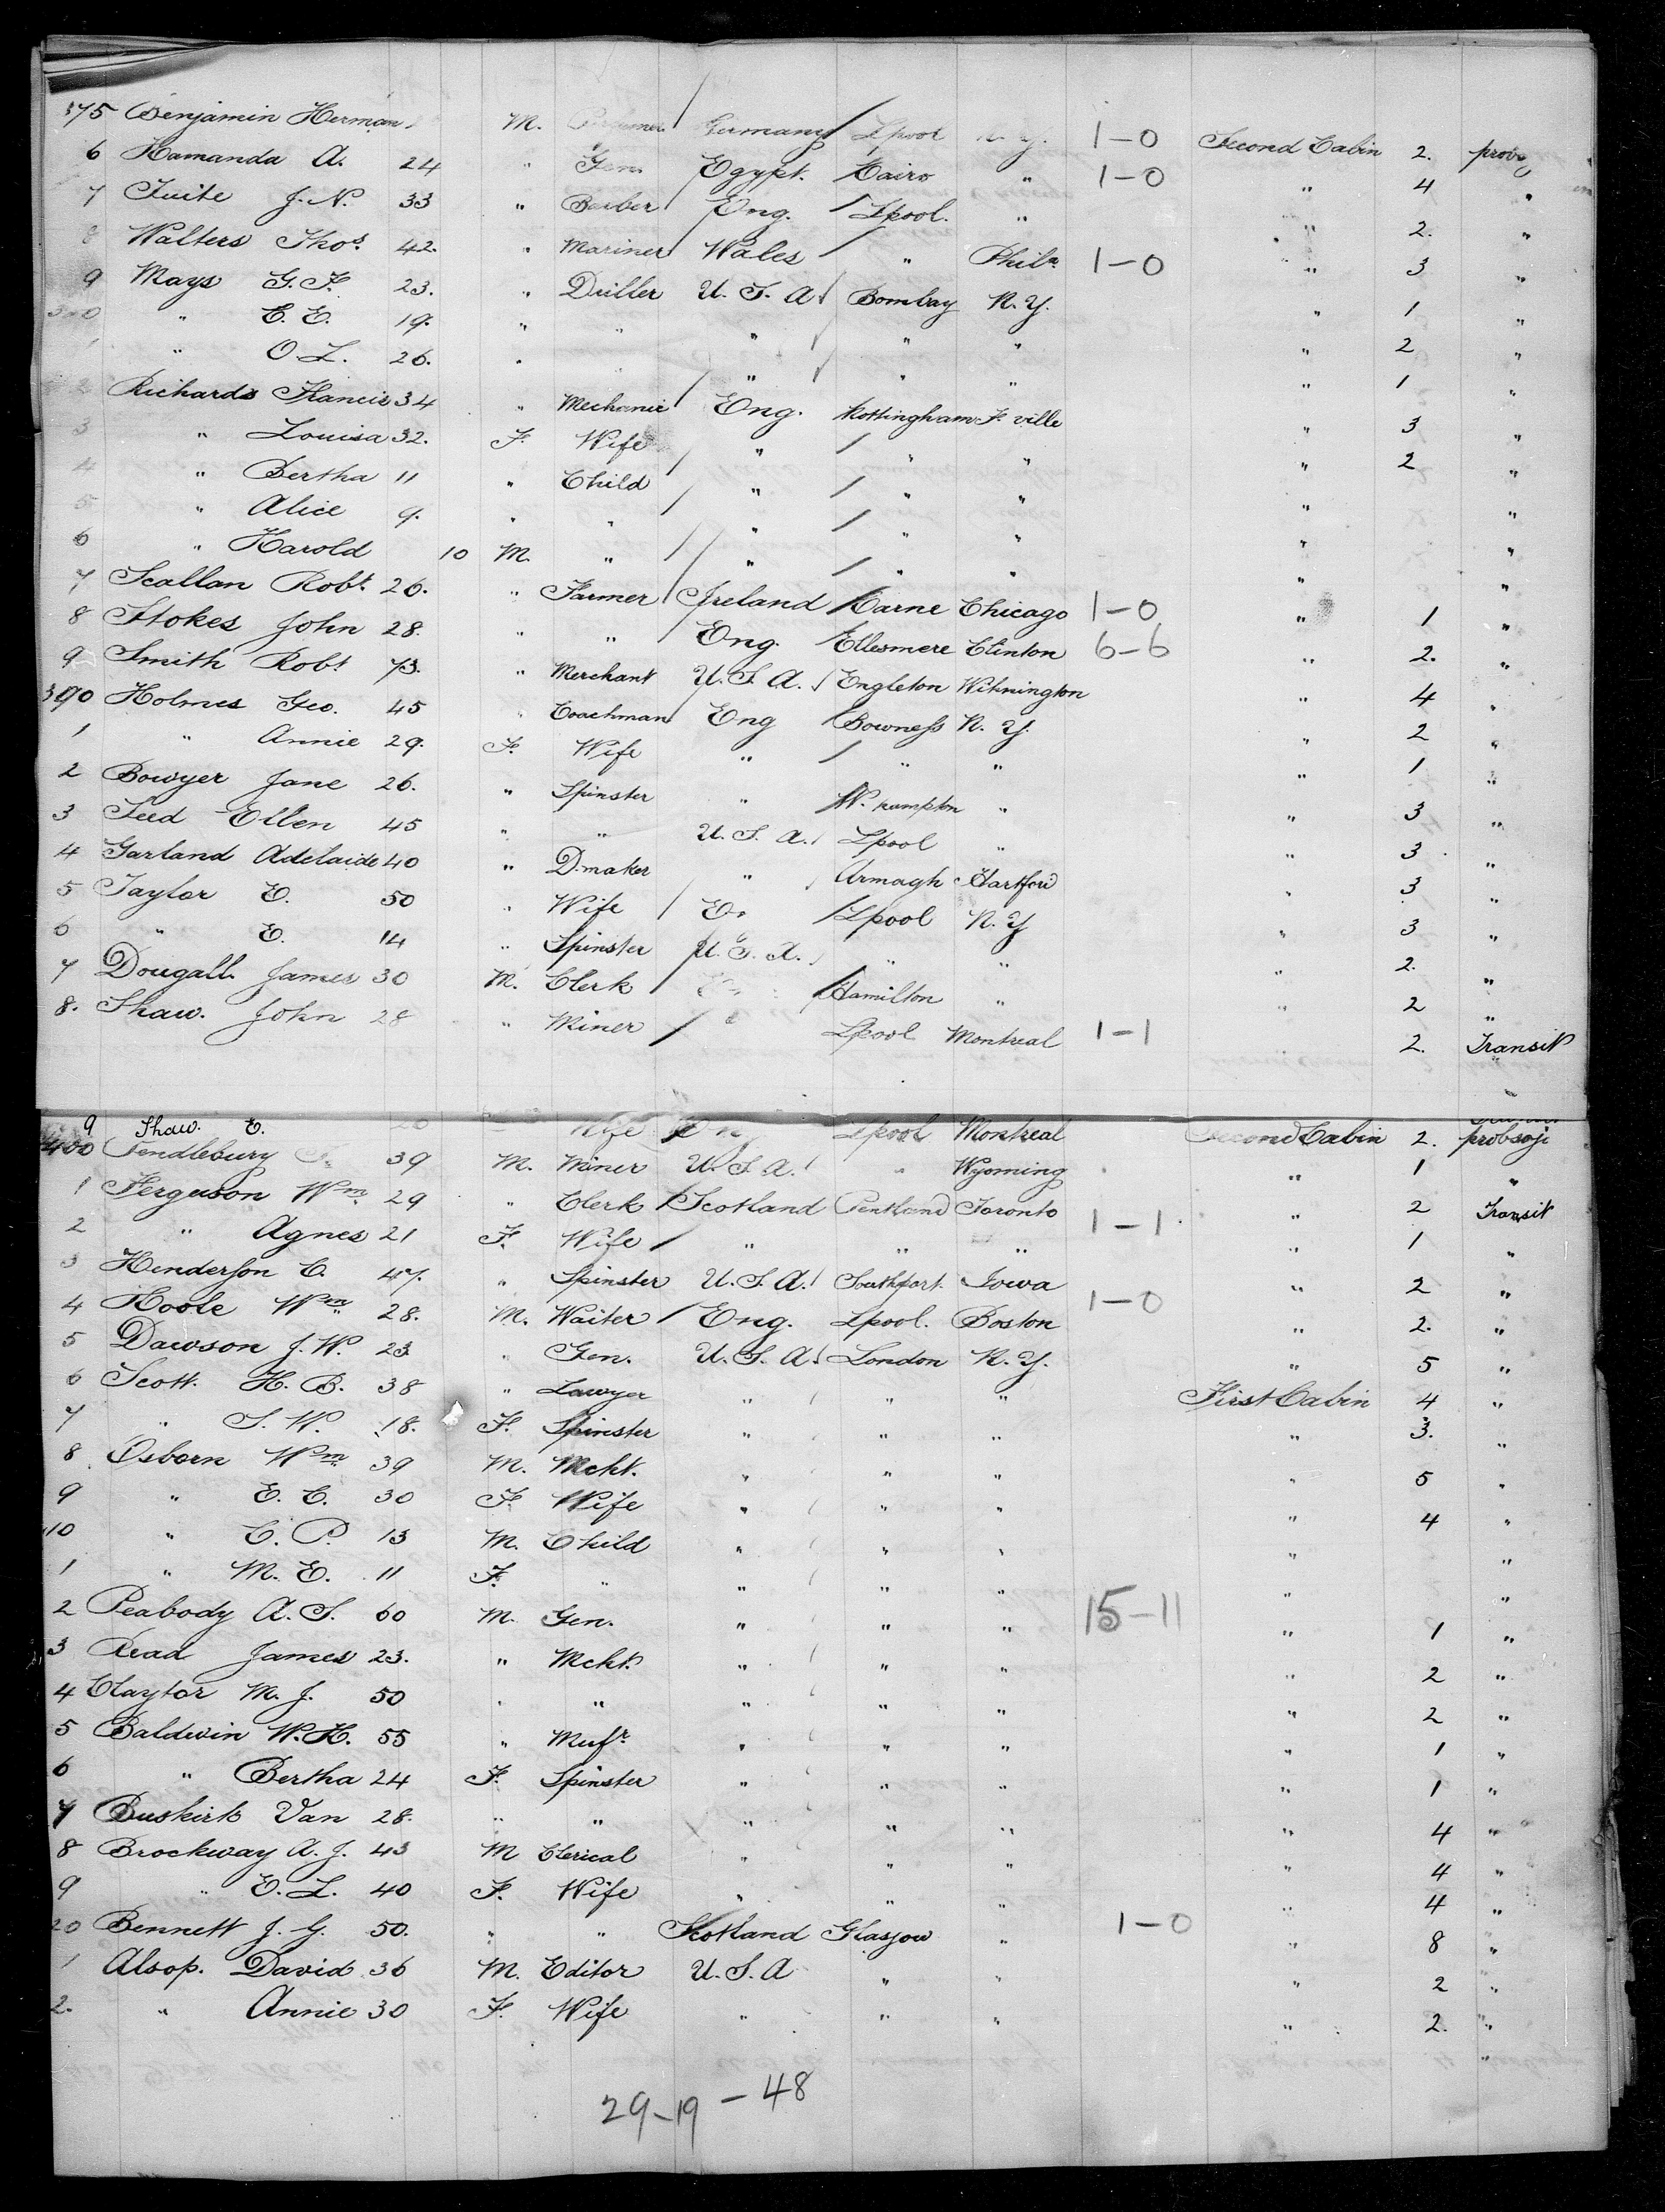 375 Benjamin Herman M. Germany L'pool N.Y. 1-0 Second Cabin 2. prob
6 Hamanda A. 24 " Gen. Egypt. Cairo " 1-0 " 4 "
7 Tuite J. N. 33 " Barber Eng. L'pool. " " 2. "
8 Walters Thos. 42. " Mariner Wales " Phila. 1-0 " 3 "
9 Mays G. F. 23. " Driller U. S. A. Bombay N. Y. " 1 "
380 " C. E. 19. " " " " " " 2 "
1 " O. L. 26. " " " " " " 1 "
2 Richards Francis 34 " Mechanic Eng. Nottingham F. ville " 3 "
3 " Louisa 32. F. Wife " " " " 2 "
4 " Bertha 11 " Child " " " " "
5 " Alice 9. " " " " " " "
6 " Harold 10 M. " " " " " "
7 Scallan Robt. 26. " Farmer Ireland Carne Chicago 1-0 " 1 "
8 Stokes John 28. " " Eng. Ellesmere Clinton 6-6 " 2. "
9 Smith Robt 73. " Merchant U. S. A. Engleton Wilmington " 4 "
390 Holmes Geo. 45 " Coachman Eng Bowness N. Y. " 2 "
1 " Annie 29. F. Wife " " " " 1 "
2 Bowyer Jane 26. " Spinster " W. hampton " " 3 "
3 Teed Ellen 45 " " U. S. A. L'pool " " 3 "
4 Garland Adelaide 40 " D.maker " Armagh Hartford " 3 "
5 Taylor E. 50 " Wife L'pool N. Y " 3 "
6 " E. 14 " Spinster U. S. A. " " " 2. "
7 Dougall. James 30 M. Clerk Hamilton " " 2 "
8. Shaw. John 28 " Miner L'pool Montreal 1-1 2. Transit
9 Shaw. E. 20 Wife Eng L'pool Montreal Second Cabin 2. probsoj
400 Pendlebury 39 M. Miner U. S. A. " Wyoming " 1 "
1 Ferguson Wm. 29 " Clerk Scotland Pentland Toronto 1-1 " 2 Transit
2 " Agnes 21 F. Wife " " " " 1 "
3 Henderson C. 47. " Spinster U. S. A. Southport. Iowa " 2 "
4 Hoole Wm. 28. M. Waiter Eng. L'pool. Boston 1-0 " 2. "
5 Dawson J. W. 23 " Gen. U. S. A. London N. Y. " 5 "
6 Scott. H. B. 38 " Lawyer " " " First Cabin 4 "
7 " S. W. 18. F. Spinster " " " " 3. "
8 Osborn Wm. 39 M. Mcht. " " " " 5 "
9 " E. C. 30 F. Wife " " " " 4 "
410 " C. P. 13 M. Child " " " " "
1 " M. E. 11 F. " " " " " "
2 Peabody A. S. 60 M. Gen. " " " 15-11 " 1 "
3 Read James 23. " Mcht. " " " " 2 "
4 Claytor M. J. 50 " " " " " " 2 "
5 Baldwin W. H. 55 " Mufr. " " " " 1 "
6 " Bertha 24 F. Spinster " " " " 1 "
7 Buskirk Van 28. " " " " " " 4 "
8 Brockway A. J. 43 M Clerical " " " " 4 "
9 " E. L. 40 F. Wife " " " " 4 "
20 Bennett J. G. 50. " " Scotland Glasgow " 1-0 " 8 "
1 Alsop. David 36 M. Editor U. S. A " " " 2 "
2. " Annie 30 F. Wife " " " " 2. "
29-19-48